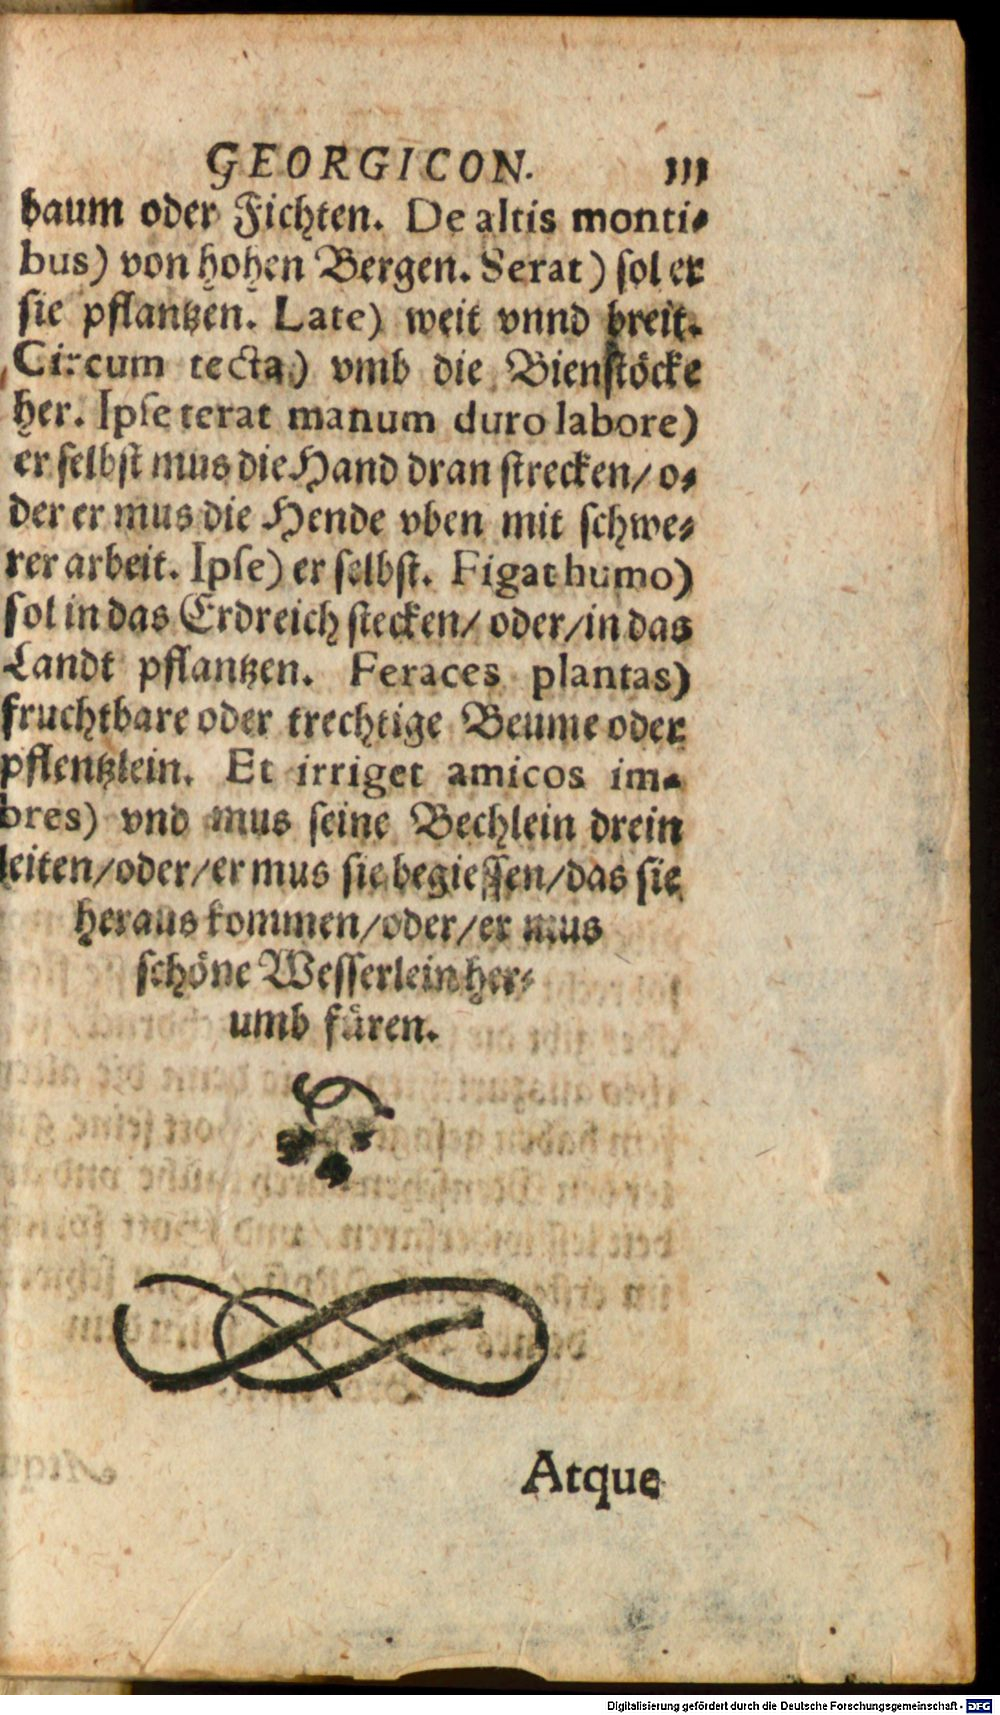 GEORGICON. 111
baum oder Fichten. De altis monti⸗
bus) von hohen Bergen. Serat) sol er
sie pflantzen. Late) weit vnnd breit.
Circum tecta) vmb die Bienstöcke
her. Ipse terat manum duro labore)
er selbst mus die Hand dran strecken/ o⸗
der er mus die Hende vben mit schwe⸗
rer arbeit. Ipse) er selbst. Figat humo)
sol in das Erdreich stecken/ oder/in das
Landt pflantzen. Feraces plantas)
fruchtbare oder trechtige Beume oder
pflentzlein. Et irriget amicos im⸗
bres) vnd mus seine Bechlein drein
leiten/oder/er mus sie begiessen/das sie
heraus kommen/oder/er mus
schöne Wesserlein her⸗
umb füren.
Atque
Digitalisierung gefördert durch die Deutsche Forschungsgemeinschaft - DFG